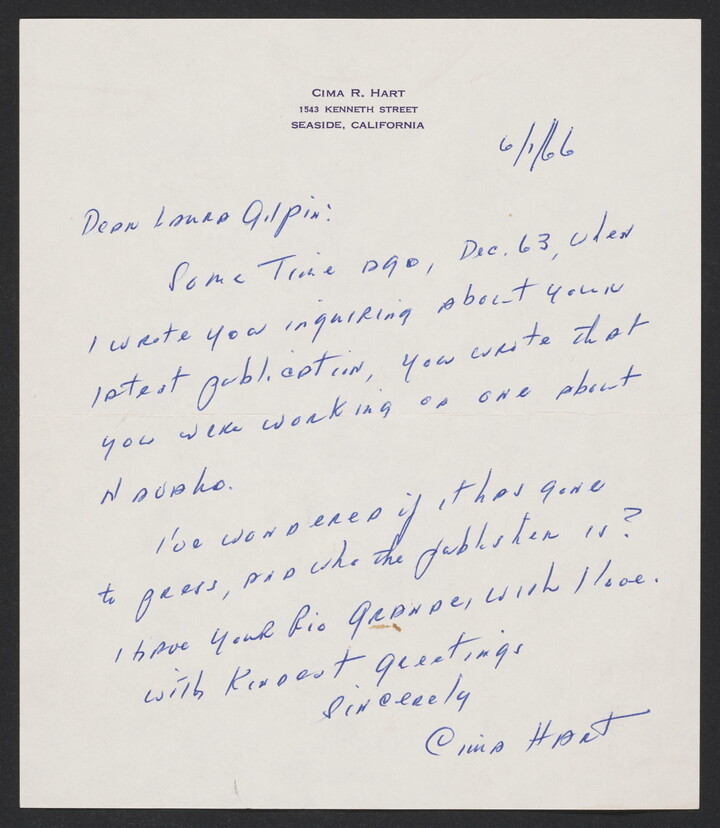 CIMA R. HART
1543 KENNETH STREET
SEASIDE, CALIFORNIA
6/1/66
Dear Laura Gilpin:
Some Time ago, Dec. 63, when
I wrote you inquiring about your
latest publication, you wrote that
you were working on one about
Navaho.
I've wondered if it has gone
to press, and who the publisher is?
I have your Rio Grande, wich I love.
with Kindest Greetings
Sincerely
Cima Hart